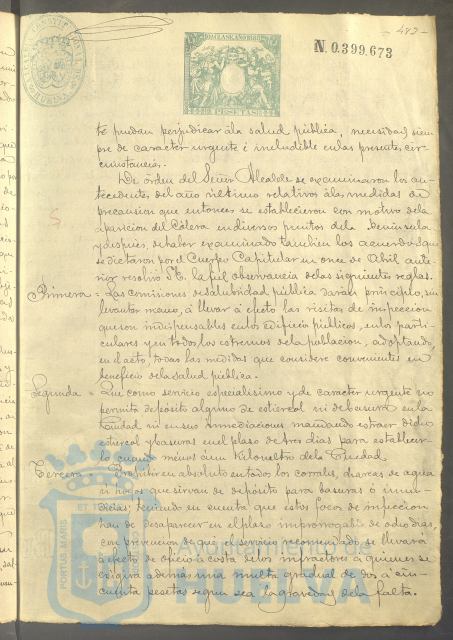 - 482 -
N. 0.399.673
PESETAS
te puedan perjudicar á la salud pública, necesidad siem-
pre de caracter urgente é ineludible en las presentes cir-
cunstancias.
De órden del Señor Alcalde se examinaron los an-
tecedentes del año último relativos á las medidas de
precaucion que entonces se establecieron con motivo de la
aparicion del Cólera en diversos puntos de la Peninsula
y despues, de haber examinado tambien los acuerdos que
se dictaron por el Cuerpo Capitular en once de Abril ante-
rior resolvió S.E. la fiel observancia de las siguientes reglas.
Primera = Las comisiones de salubridad pública darán principio, sin
levantar mano, á llevar á efecto las visitas de inspeccion
que son indispensables en los edificios públicos, en los parti-
culares y en todos los estremos de la poblacion, adoptando,
en el acto, todas las medidas que considere convenientes en
beneficio de la salud pública.
Segunda = Que como servicio especialisimo y de caracter urgente no
permita depósito alguno de estiercol ni de basura en la
Ciudad ni en sus inmediaciones mandando estraer dicho
estiercol y basuras en el plazo de tres dias para establecer-
lo cuando menos á un Kilometro de la Ciudad.
Tercera = Prohibir en absoluto en todos los corrales, charcas de agua
ni hoyos que sirvan de depósito para basuras ó inmun-
dicias, teniendo en cuenta que estos focos de infeccion
han de desaparecer en el plazo improrrogable de ocho dias,
con prevencion de que el servicio recomendado se llevará
á efecto de oficio á costa de los infractores á quienes se
exigirá además una multa gradual de dos á cin-
cuenta pesetas segun sea la gravedad de la falta.
PORTUS MARIS
ET TERRAE
Ayuntamiento de
HUELVA